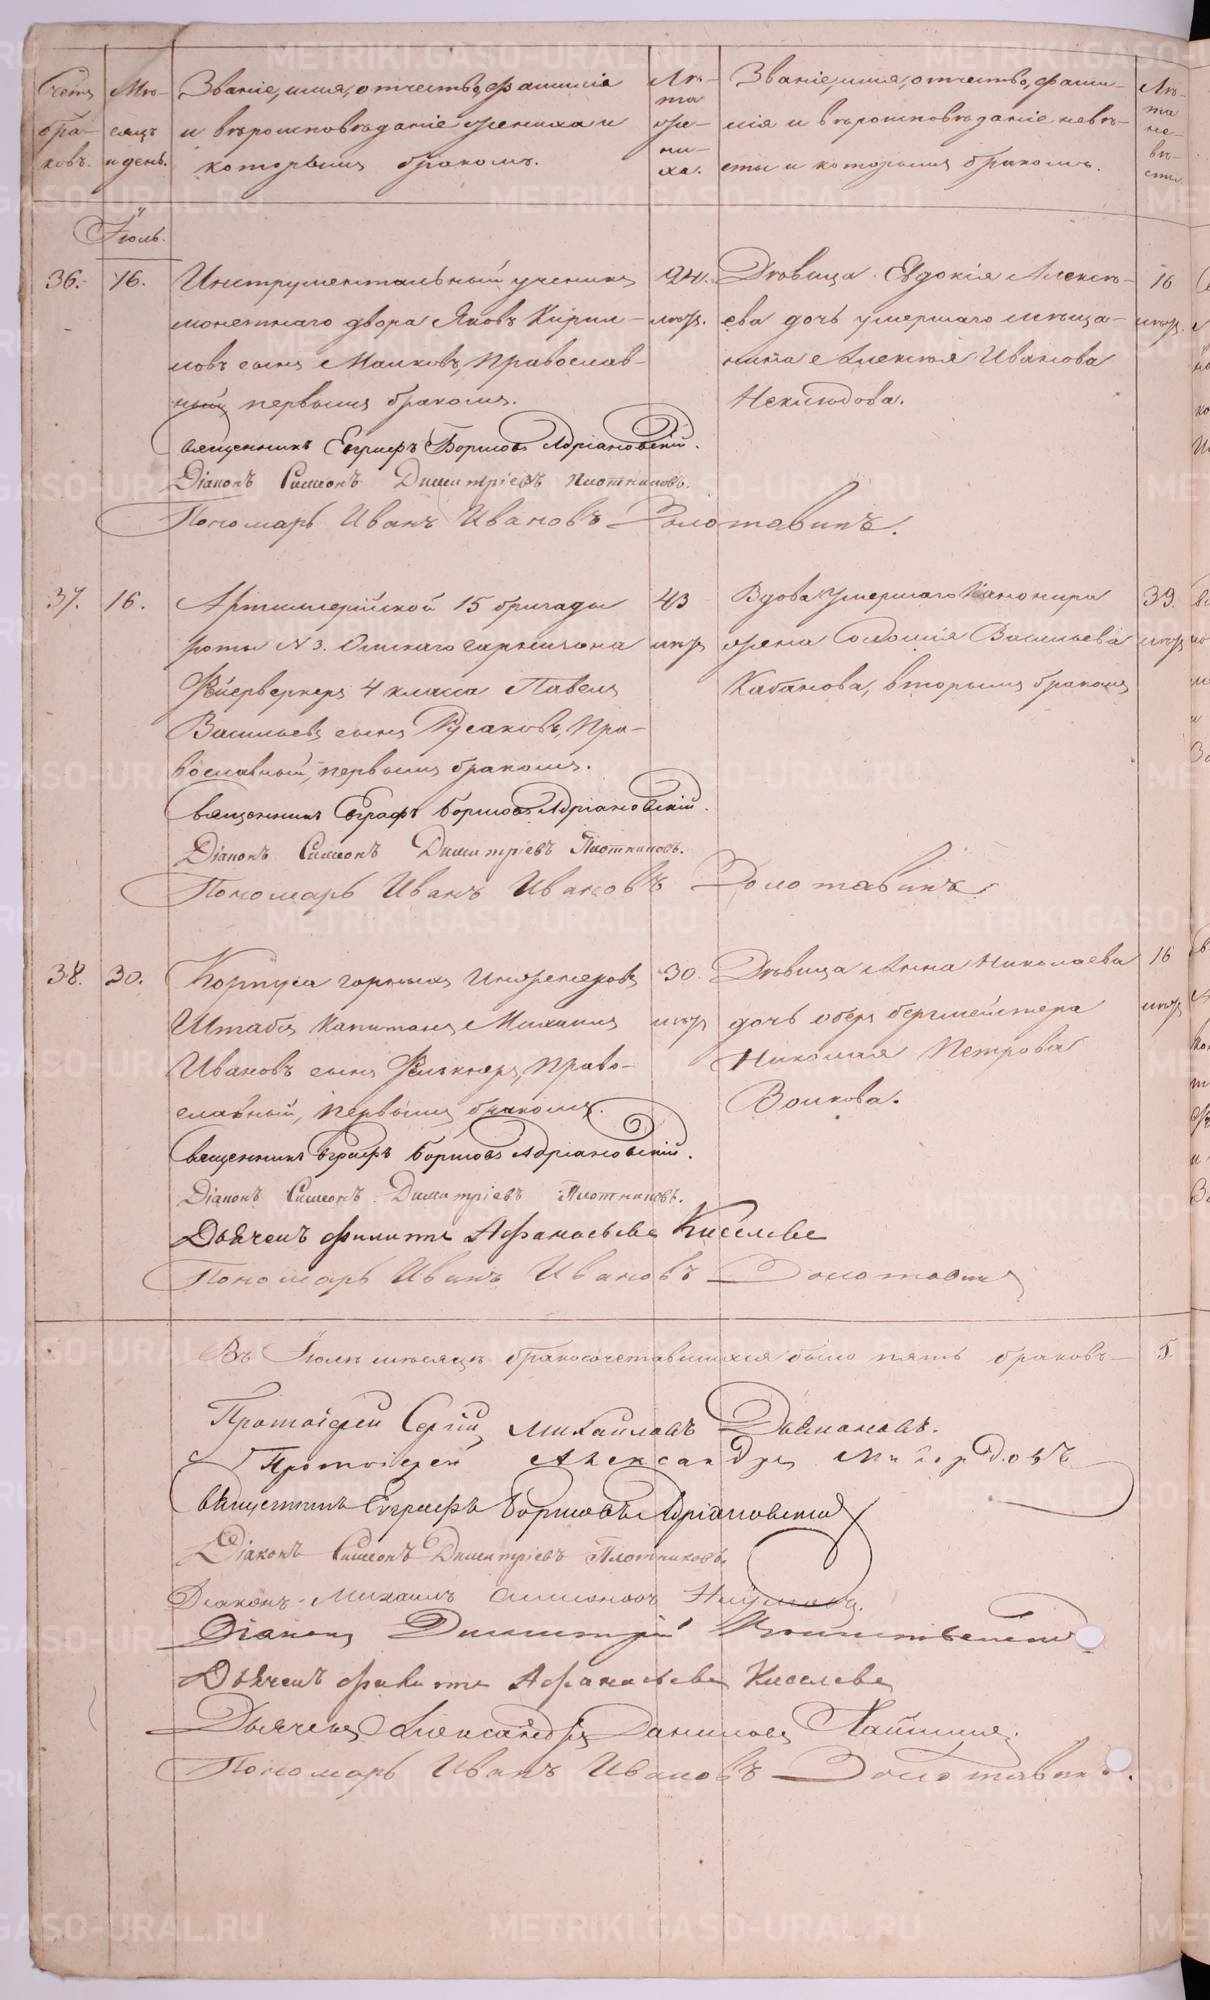 Счетъ браковъ.
Мѣсяцъ и день.
Званіе, имя, отчество, фамилія
и вѣроисповѣданіе жениха и
которымъ бракомъ.
Лѣта жениха.
Званіе, имя, отчество, фами-
лія и вѣроисповѣданіе невѣ-
сты и которымъ бракомъ.
Лѣта невѣсты.
Іюль.
36. 16.
Инструментальный ученикъ
монетнаго двора Яковъ Кирил-
ловъ сынъ Малковъ, Православ-
ный первымъ бракомъ.
24.
Дѣвица Евдокія Алексѣ-
ева дочь умершаго мѣща-
нина Алексѣя Иванова
Неклюдова.
16
Священникъ Евграфъ Борисовъ Адріановскій.
Діаконъ Симеонъ Димитріевъ Плотниковъ.
Пономарь Иванъ Ивановъ Золотавинъ.
37. 16.
Артиллерійской 15 бригады
роты № 3. Омскаго гарнизона
Фейерверкеръ 4 класса Павелъ
Васильевъ сынъ Русаковъ, Пра-
вославный, первымъ бракомъ.
43
Вдова умершаго Канонира
жена Соломія Васильева
Кабанова, вторымъ бракомъ
39.
Священникъ Евграфъ Борисовъ Адріановскій.
Діаконъ Симеонъ Димитріевъ Плотниковъ.
Пономарь Иванъ Ивановъ Золотавинъ.
38. 30.
Корпуса горныхъ Инженеровъ
Штабсъ Капитанъ Михаилъ
Ивановъ сынъ Фелькнеръ, Право-
славный, первымъ бракомъ.
30.
Дѣвица Анна Николаева
дочь оберъ бергмейстера
Николая Петрова
Волкова.
16
Священникъ Евграфъ Борисовъ Адріановскій.
Діаконъ Симеонъ Димитріевъ Плотниковъ.
Дьячекъ Филиппъ Афанасьевъ Киселевъ
Пономарь Иванъ Ивановъ Золотавинъ
Въ Іюлѣ мѣсяцѣ бракосочетавшихся было пять браковъ — 5.
Протоіерей Сергій Михайловъ
Протоіерей Александръ
Священникъ Евграфъ Борисовъ Адріановскій
Діаконъ Симеонъ Димитріевъ Плотниковъ.
Діаконъ Михаилъ Симеоновъ
Діаконъ Димитрій
Дьячекъ Филиппъ Афанасьевъ Киселевъ
Дьячекъ Александръ Даниловъ
Пономарь Иванъ Ивановъ Золотавинъ.
METRIKI.GASO-URAL.RU